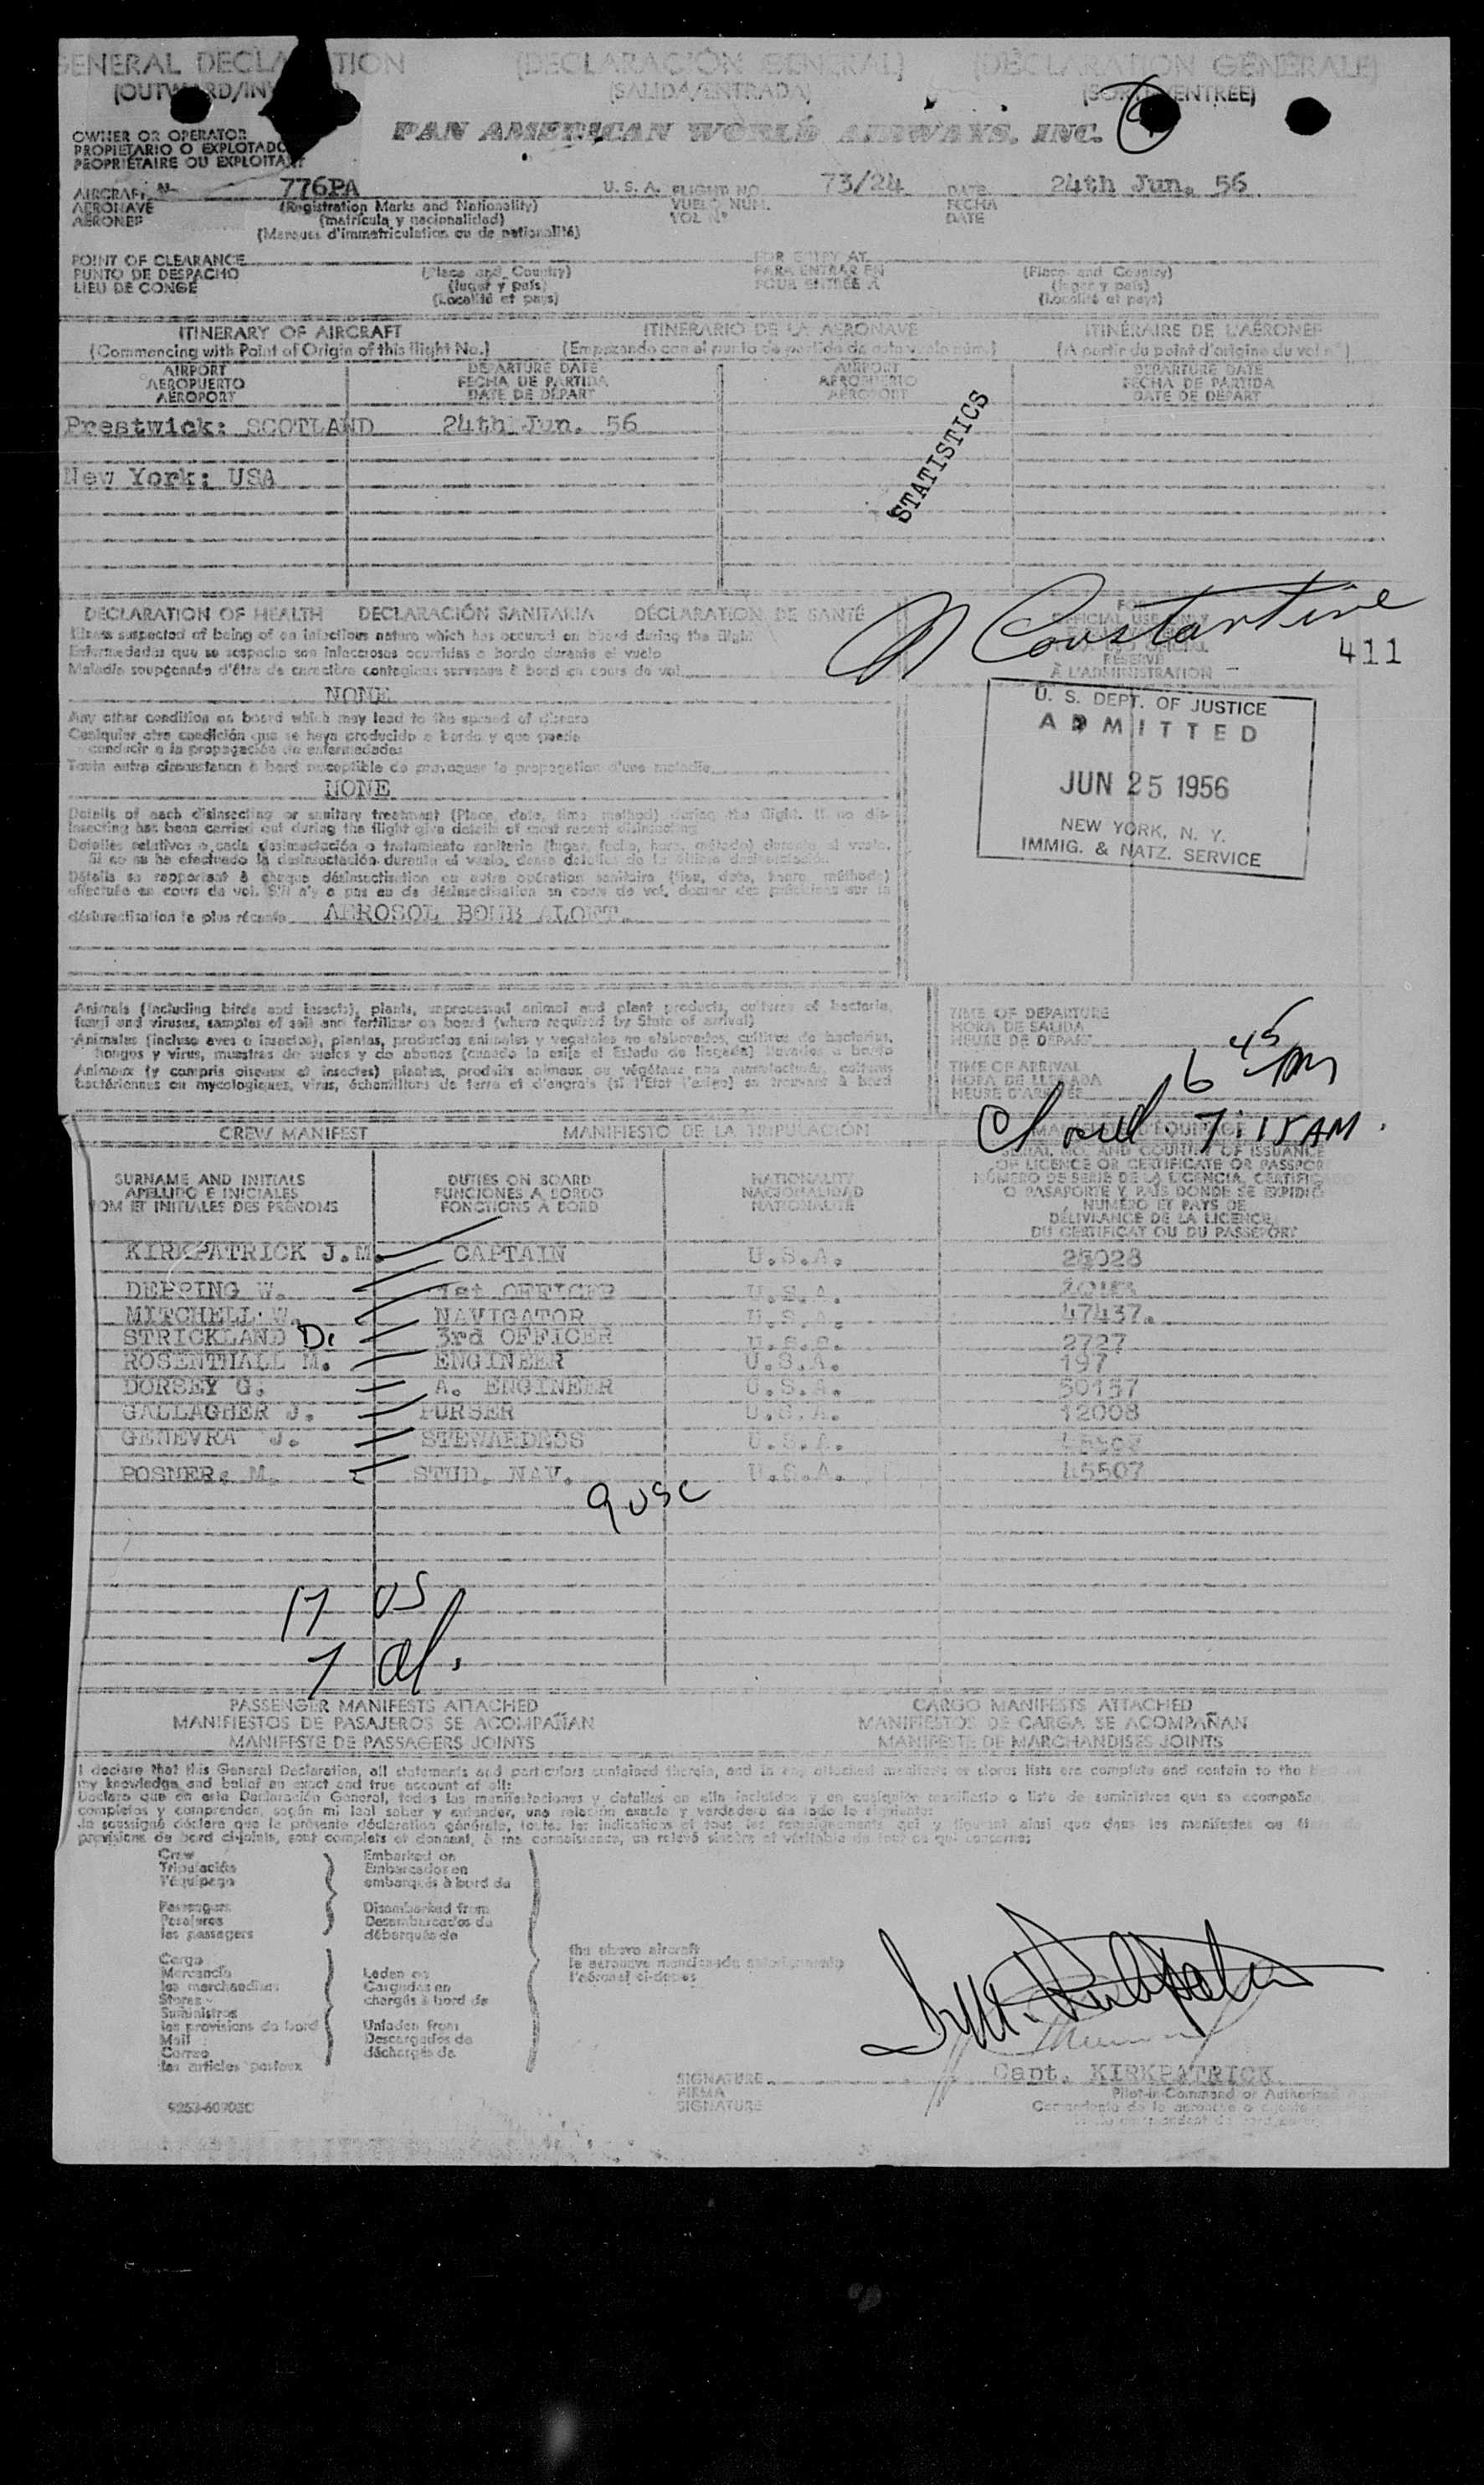 GENERAL DECLA TION (DECLARACIÓN GENERAL) (DÉCLARATION GÉNÉRALE)
(OUTW RD/INW (SALIDA/ENTRADA) (SORTIE ENTRÉE)
OWNER OR OPERATOR
PROPIETARIO O EXPLOTADO
PROPRIÉTAIRE OU EXPLOITANT
PAN AMERICAN WORLD AIRWAYS, INC.
AIRCRAFT N- 776PA U. S. A. FLIGHT NO. 73/24 DATE 24th Jun. 56
AERONAVE (Registration Marks and Nationality) VUELO NÚM. FECHA
AÉRONEF (matrícula y nacionalidad) VOL Nº DATE
(Marques d'immatriculation ou de nationalité)
POINT OF CLEARANCE FOR ENTRY AT
PUNTO DE DESPACHO (Place and Country) PARA ENTRAR EN (Place and Country)
LIEU DE CONGÉ (lugar y país) POUR ENTRÉE A (lugar y país)
(Localité et pays) (Localité et pays)
ITINERARY OF AIRCRAFT ITINERARIO DE LA AERONAVE ITINÉRAIRE DE L'AÉRONEF
(Commencing with Point of Origin of this flight No.) (Empezando con el punto de partida de este vuelo núm.) (A partir du point d'origine du vol nº)
AIRPORT DEPARTURE DATE AIRPORT DEPARTURE DATE
AEROPUERTO FECHA DE PARTIDA AEROPUERTO FECHA DE PARTIDA
AÉROPORT DATE DE DÉPART AÉROPORT DATE DE DÉPART
Prestwick: SCOTLAND 24th Jun. 56
New York: USA
STATISTICS
Constantine
411
DECLARATION OF HEALTH DECLARACIÓN SANITARIA DÉCLARATION DE SANTÉ
Illness suspected of being of an infectious nature which has occured on board during the flight
Enfermedades que se sospecha son infecciosas ocurridas a bordo durante el vuelo
Maladie soupçonnée d'être de caractère contagieux survenue à bord en cours de vol
NONE
OFFICIAL USE ONLY
RÉSERVÉ
À L'ADMINISTRATION
U. S. DEPT. OF JUSTICE
ADMITTED
JUN 25 1956
NEW YORK, N. Y.
IMMIG. & NATZ. SERVICE
Any other condition on board which may lead to the spread of disease
Cualquier otra condición que se haya producido a bordo y que puede
conducir a la propagación de enfermedades
Toute autre circonstance à bord susceptible de provoquer la propagation d'une maladie
NONE
Details of each disinsecting or sanitary treatment (Place, date, time method) during the flight. If no dis-
insecting has been carried out during the flight give details of most recent disinsecting
Detalles relativos a cada desinsectación o tratamiento sanitario (lugar, fecha, hora, método) durante el vuelo.
Si no se ha efectuado la desinsectación durante el vuelo, dense detalles de la última desinsectación.
Détails se rapportant à chaque désinsectisation ou autre opération sanitaire (lieu, date, heure, méthode)
effectuée en cours de vol. S'il n'y a pas eu de désinsectisation en cours de vol, donner des précisions sur la
désinsectisation la plus récente AEROSOL BOMB ALOFT.
Animals (including birds and insects), plants, unprocessed animal and plant products, cultures of bacteria,
fungi and viruses, samples of soil and fertilizer on board (where required by State of arrival)
Animales (incluso aves e insectos), plantas, productos animales y vegetales no elaborados, cultivos de bacterias,
hongos y virus, muestras de suelos y de abonos (cuando lo exija el Estado de llegada) llevados a bordo
Animaux (y compris oiseaux et insectes) plantes, produits animaux ou végétaux non manufacturés, cultures
bactériennes ou mycologiques, virus, échantillons de terre et d'engrais (si l'État l'exige) se trouvant à bord
TIME OF DEPARTURE
HORA DE SALIDA
HEURE DE DÉPART
TIME OF ARRIVAL
HORA DE LLEGADA 6 45 AM
HEURE D'ARRIVÉE
7:15 AM.
CREW MANIFEST MANIFIESTO DE LA TRIPULACIÓN
SURNAME AND INITIALS DUTIES ON BOARD NATIONALITY SERIAL NO. AND COUNTRY OF ISSUANCE
APELLIDO E INICIALES FUNCIONES A BORDO NACIONALIDAD OF LICENCE OR CERTIFICATE OR PASSPOR
NOM ET INITIALES DES PRÉNOMS FONCTIONS A BORD NATIONALITÉ NÚMERO DE SERIE DE LA LICENCIA, CERTIFICADO
O PASAPORTE Y PAÍS DONDE SE EXPIDIÓ
NUMÉRO ET PAYS DE
DÉLIVRANCE DE LA LICENCE,
DU CERTIFICAT OU DU PASSEPORT
KIRKPATRICK J.M. CAPTAIN U.S.A. 23028
DEPPING W. 1st OFFICER U.S.A.
MITCHELL W. NAVIGATOR U.S.A. 47437.
STRICKLAND D. 3rd OFFICER U.S.S. 2727
ROSENTHALL M. ENGINEER U.S.A. 197
DORSEY G. A. ENGINEER U.S.A. 50157
GALLAGHER J. PURSER U.S.A. 12008
GENEVRA J. STEWARDESS U.S.A.
POSNER. M. STUD. NAV. U.S.A. 45507
9 USC
17 US
1 al.
PASSENGER MANIFESTS ATTACHED CARGO MANIFESTS ATTACHED
MANIFIESTOS DE PASAJEROS SE ACOMPAÑAN MANIFIESTOS DE CARGA SE ACOMPAÑAN
MANIFESTE DE PASSAGERS JOINTS MANIFESTE DE MARCHANDISES JOINTS
I declare that this General Declaration, all statements and particulars contained therein, and in any attached manifests or stores lists are complete and contain to the best of
my knowledge and belief an exact and true account of all:
Declaro que en esta Declaración General, todas las manifestaciones y detalles en ella incluidos y en cualquier manifiesto o lista de suministros que se acompaña
completos y comprenden, según mi leal saber y entender, una relación exacta y verdadera de todo lo siguiente:
Je soussigné déclare que la présente déclaration générale, toutes les indications et tous les renseignements qui y figurent ainsi que dans les manifestes ou listes de
provisions de bord ci-joints, sont complets et donnent, à ma connaissance, un relevé sincère et véritable de tout ce qui concerne:
Crew Embarked on
Tripulación Embarcados en
l'équipage embarqués à bord de
Passengers Disembarked from
Pasajeros Desembarcados de
les passagers débarqués de
Cargo the above aircraft
Mercancía Laden on la aeronave mencionada anteriormente
les marchandises Cargados en l'aéronef ci-dessus
Stores chargés à bord de
Suministros
les provisions de bord Unladen from
Mail Descargados de
Correo déchargés de
les articles postaux
J.M. Kirkpatrick
Capt. KIRKPATRICK
SIGNATURE Pilot-in-Command or Authorized
FIRMA
SIGNATURE